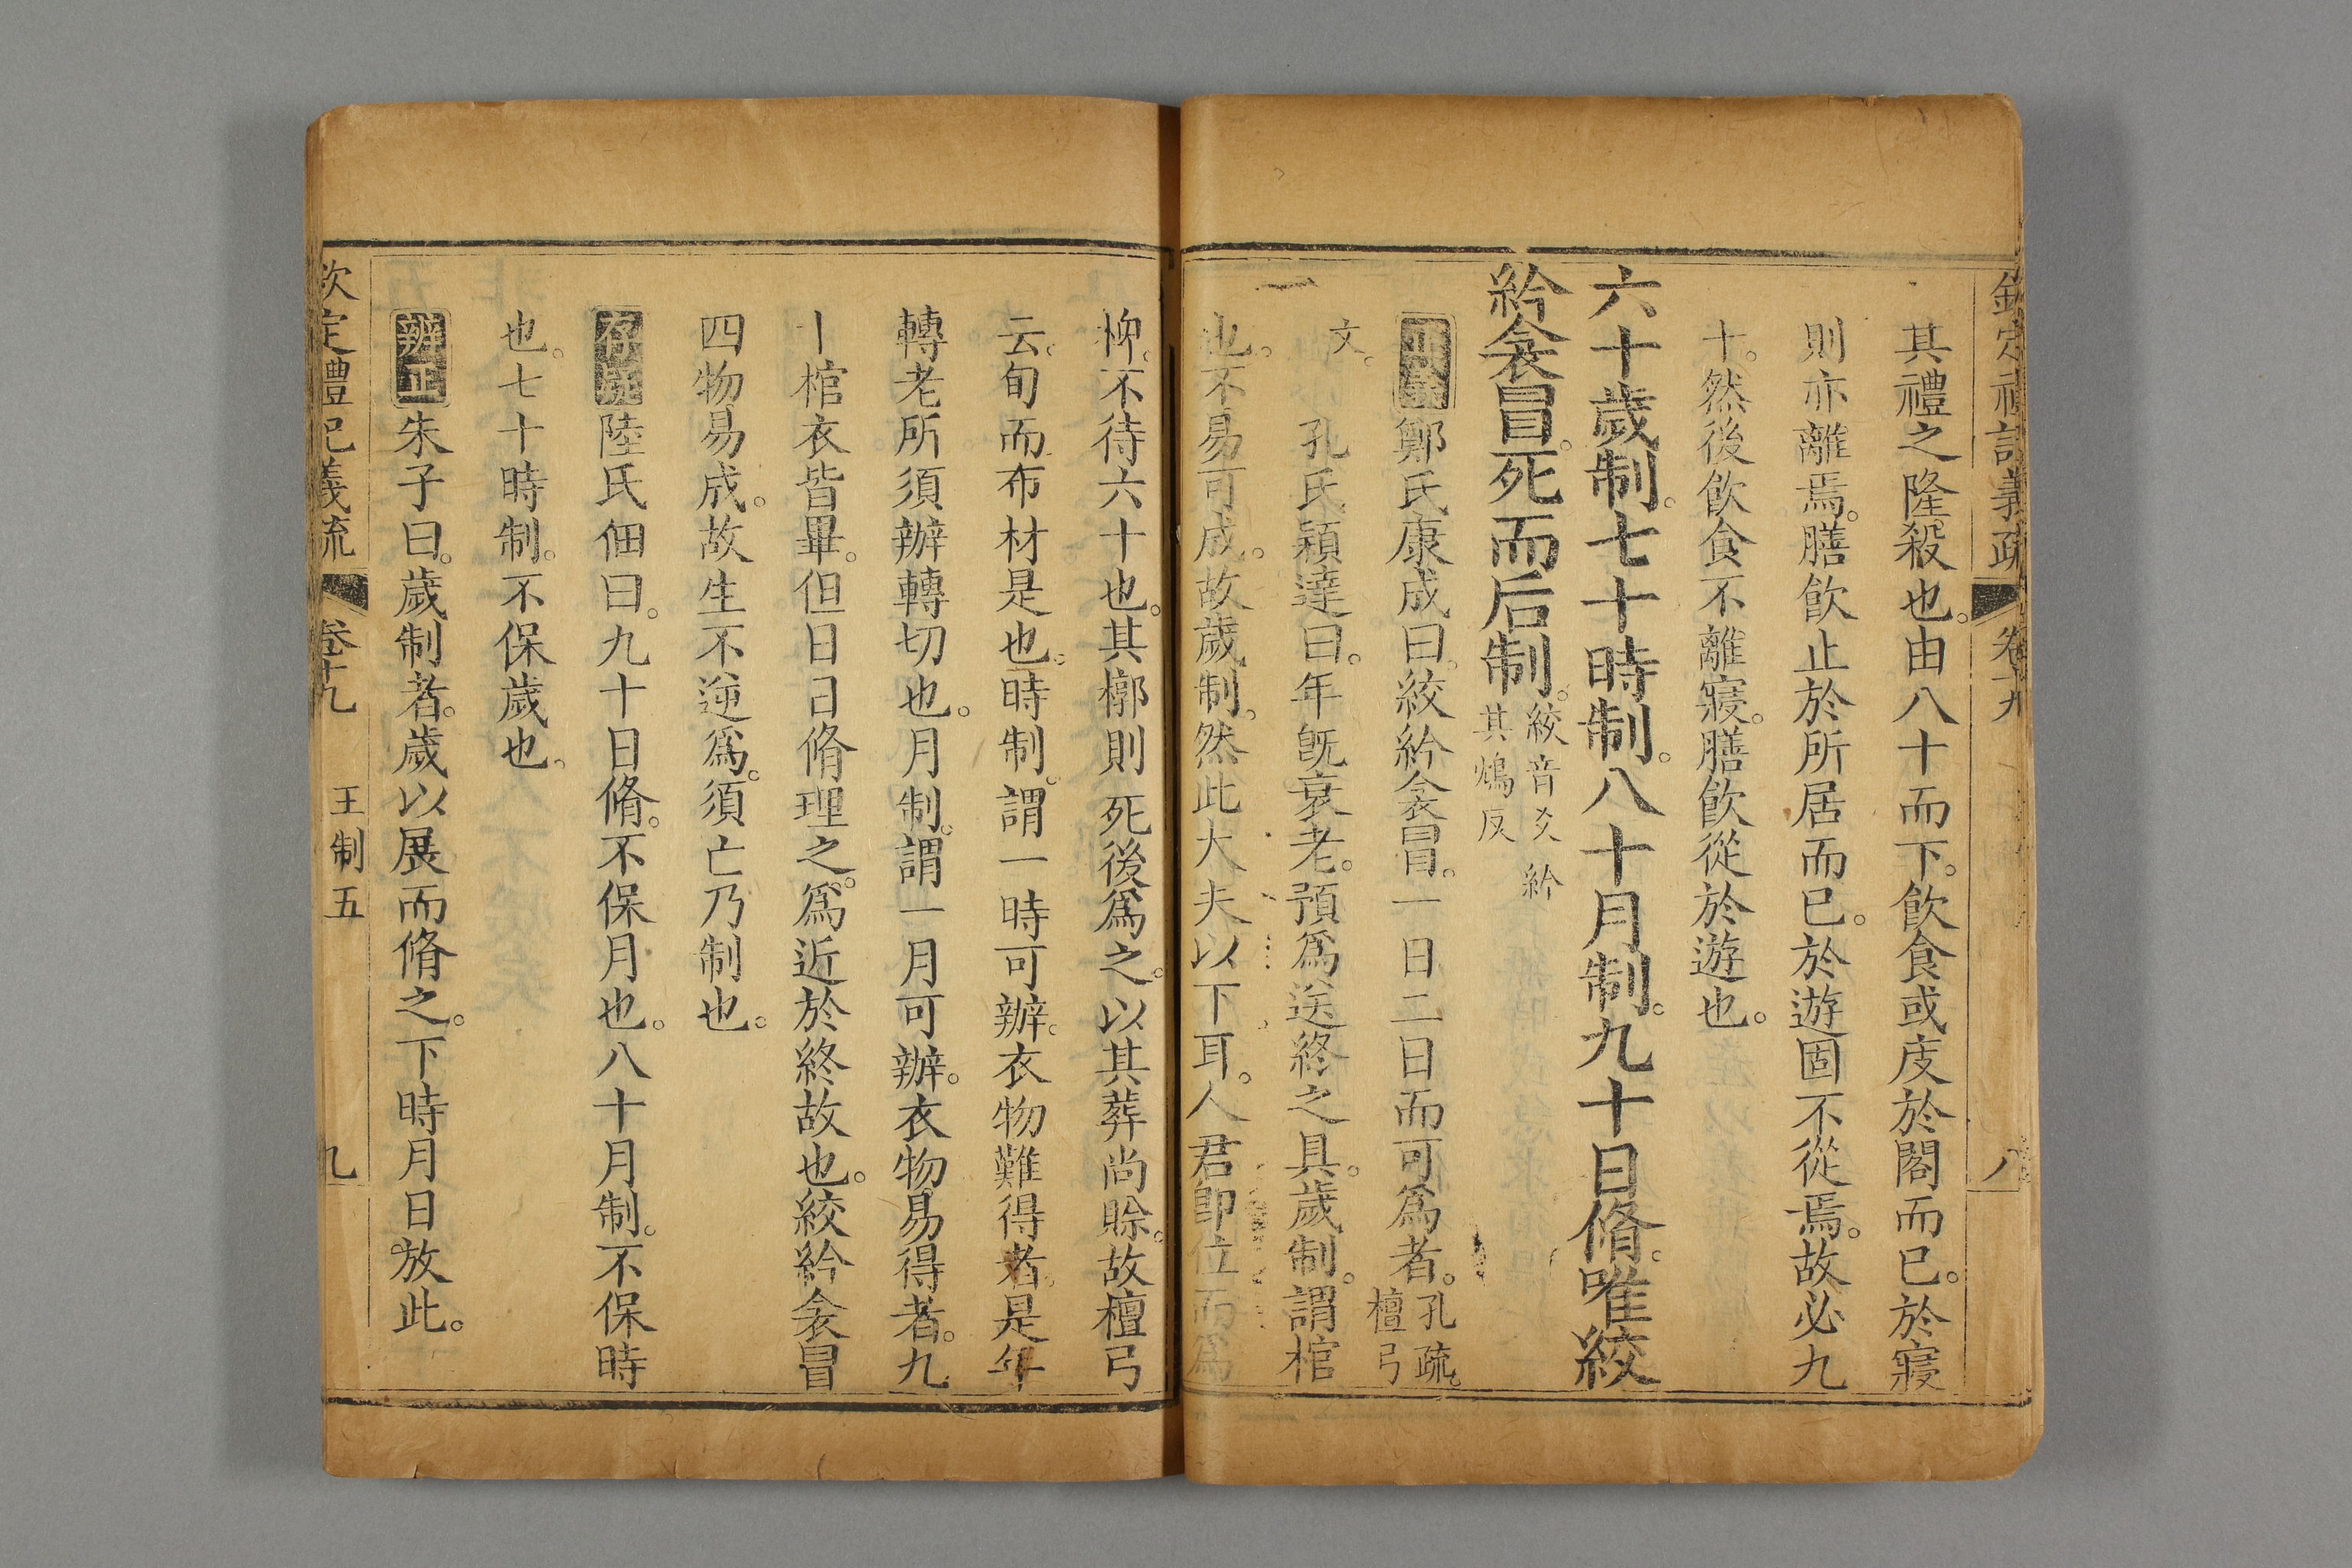 欽定禮記義疏 卷十九 八
其禮之隆殺也。由八十而下。飲食或庋於閣而已。於寢
則亦離焉。膳飲止於所居而已。於遊固不從焉。故必九
十。然後飲食不離寢。膳飲從於遊也。
六十歲制。七十時制。八十月制。九十日脩。唯絞
紟衾冒。死而后制。絞音爻 紟
其鴆反
鄭氏康成曰。絞紟衾冒。一日二日而可爲者。孔疏。
檀弓
文。 孔氏穎達曰。年旣衰老。預爲送終之具。歲制。謂棺
也。不易可成。故歲制。然此大夫以下耳。人君卽位而爲
椑。不待六十也。其槨則死後爲之。以其葬尚賒。故檀弓
云。旬而布材是也。時制。謂一時可辦。衣物難得者。是年
轉老所須辦轉切也。月制。謂一月可辦。衣物易得者。九
棺衣皆畢。但日日脩理之。爲近於終故也。絞紟衾冒
四物易成。故生不逆爲。須亡乃制也。
存疑 陸氏佃曰。九十日脩。不保月也。八十月制。不保時
也。七十時制。不保歲也。
辨正 朱子曰。歲制者。歲以展而脩之。下時月日放此。
欽定禮記義疏 卷十九 王制五 九